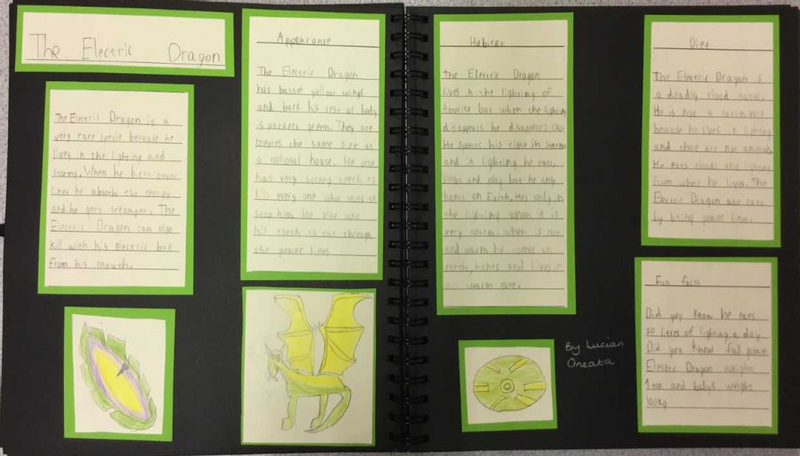 The Electric Dragon
The Electric Dragon is a
very rare specie because he
lives in the lighting and
storms. When he bites power
lines he absorbs the energy
and he gets stronger. The
Electric Dragon can also
kill with his electric ball
from his mouth.
Appearance
The Electric Dragon
has yellow wings
and back his rest of body
is green. They are
the same size as
a colosal house. He also
has very strong teeth to
kill one who
him. He also use
his teeth to cut through
the power lines
Habitat
The Electric Dragon
lives in the lighting of
America but when the lighting
disappears he disappears
He his time in
and in lighting he eats,
and play but he only
hunts on Earth. He only in
the lighting when it is
very warm, when is not
and warm he comes on
earth, and lives in
a warm
Diet
The Electric Dragon is
a deadly cloud
He is has a carnivore
because he lives in lighting
and there are not animals
He eats clouds and lighting
from where he lives. The
Electric Dragon also eats
by biting power lines.
Fun facts
Did you know he eats
20 litres of lighting a day.
Did you know full grown
Electric Dragon weight
1 ton and babys weight
100kg
By Lucian
Oneata